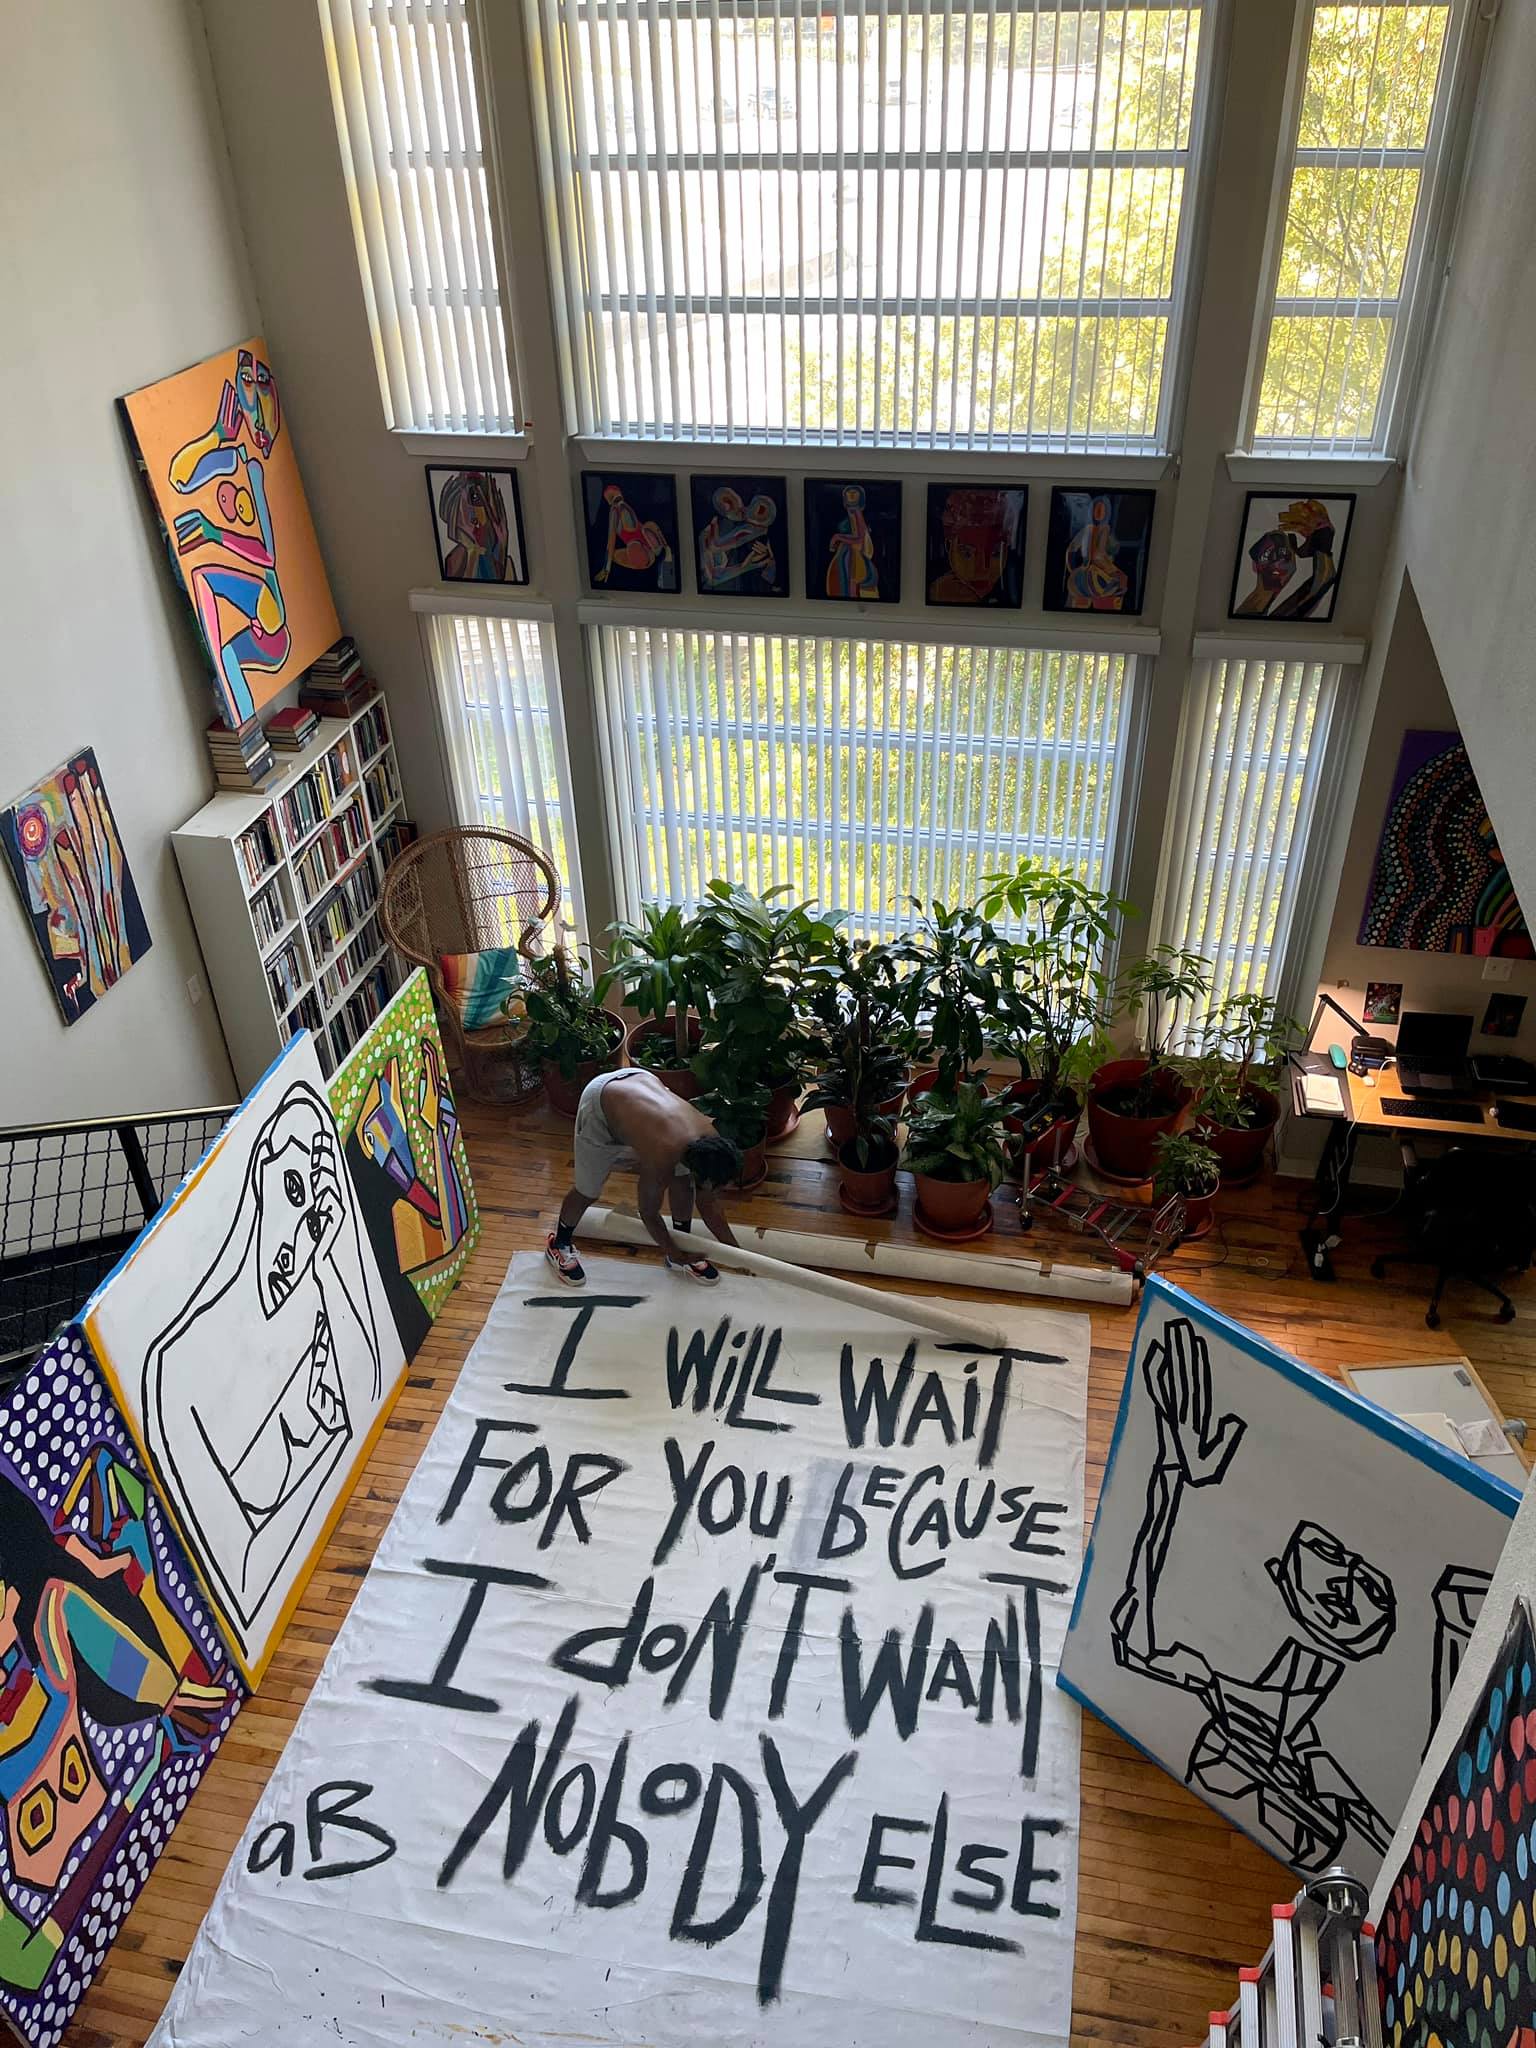 I WiLL WAiT
FOR YOU bECAUSE
I doN'T WANT
NObODY ELSE
aB